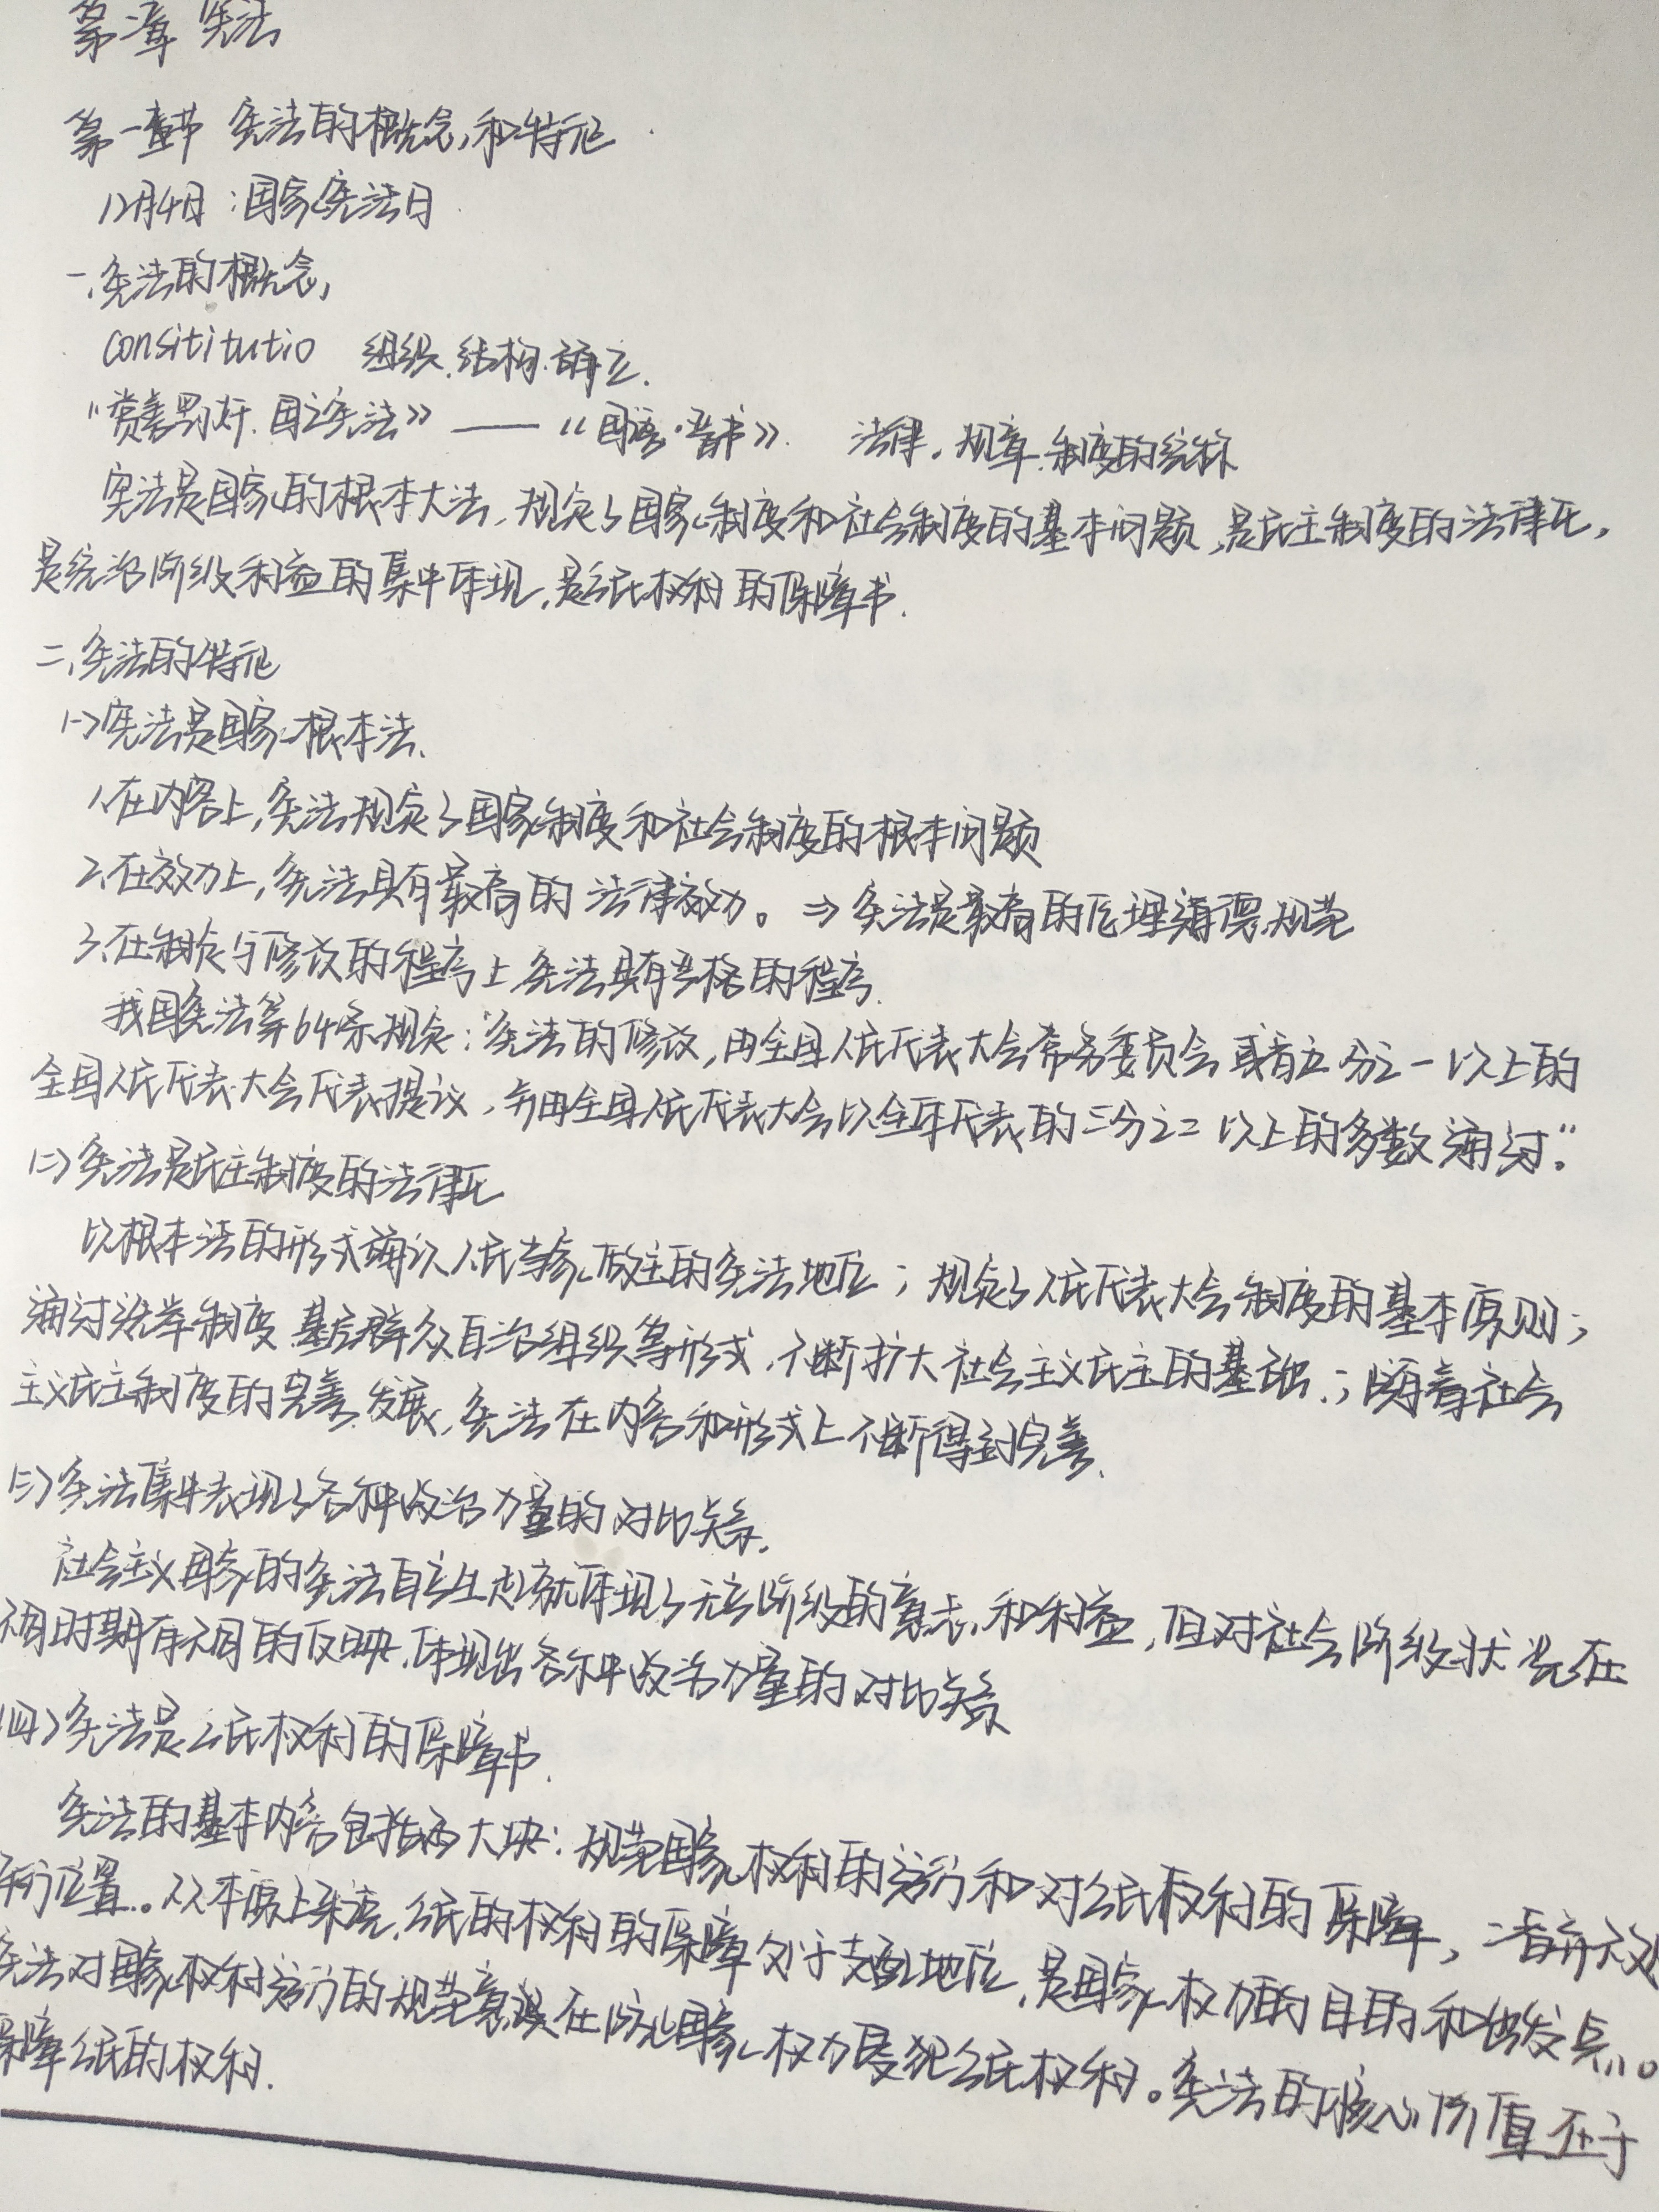 第二章 宪法
第一章节 宪法的概念和特征
12月4日：国家宪法日
一、宪法的概念
consititutio 组织、结构、确立.
"赏善罚奸、国之宪法》——《国语·晋书》. 法律、规章、制度的统称
宪法是国家的根本大法，规定了国家制度和社会制度的基本问题，是民主制度的法律化，
是统治阶级利益的集中体现，是公民权利的保障书.
二、宪法的特征
(一)宪法是国家根本法、
1、在内容上，宪法规定了国家制度和社会制度的根本问题
2、在效力上，宪法具有最高的法律效力。⇒ 宪法是最高的伦理道德规范
3、在制定与修改的程序上宪法具有严格的程序.
我国宪法第64条规定："宪法的修改，由全国人民代表大会常务委员会或者五分之一以上的
全国人民代表大会代表提议，并由全国人民代表大会以全体代表的三分之二以上的多数通过。"
(二)宪法是民主制度的法律化
以根本法的形式确认人民当家做主的宪法地位；规定了人民代表大会制度的基本原则；
通过选举制度、基层群众自治组织等形式，不断扩大社会主义民主的基础；随着社会
主义民主制度的完善、发展，宪法在内容和形式上不断得到完善、
(三)宪法集中表现了各种政治力量的对比关系.
社会主义国家的宪法自产生起就体现了无产阶级的意志和利益，但对社会阶级状况在
不同时期有不同的反映，体现出各种政治力量的对比关系
(四)宪法是公民权利的保障书.
宪法的基本内容包括两大块：规范国家权利的运行和对公民权利的保障，二者并不处
于同等位置。从本质上来说，公民的权利的保障处于支配地位，是国家权力的目的和出发点。
宪法对国家权利运行的规范意义在防止国家权力侵犯公民权利。宪法的核心价值在于
保障公民的权利.